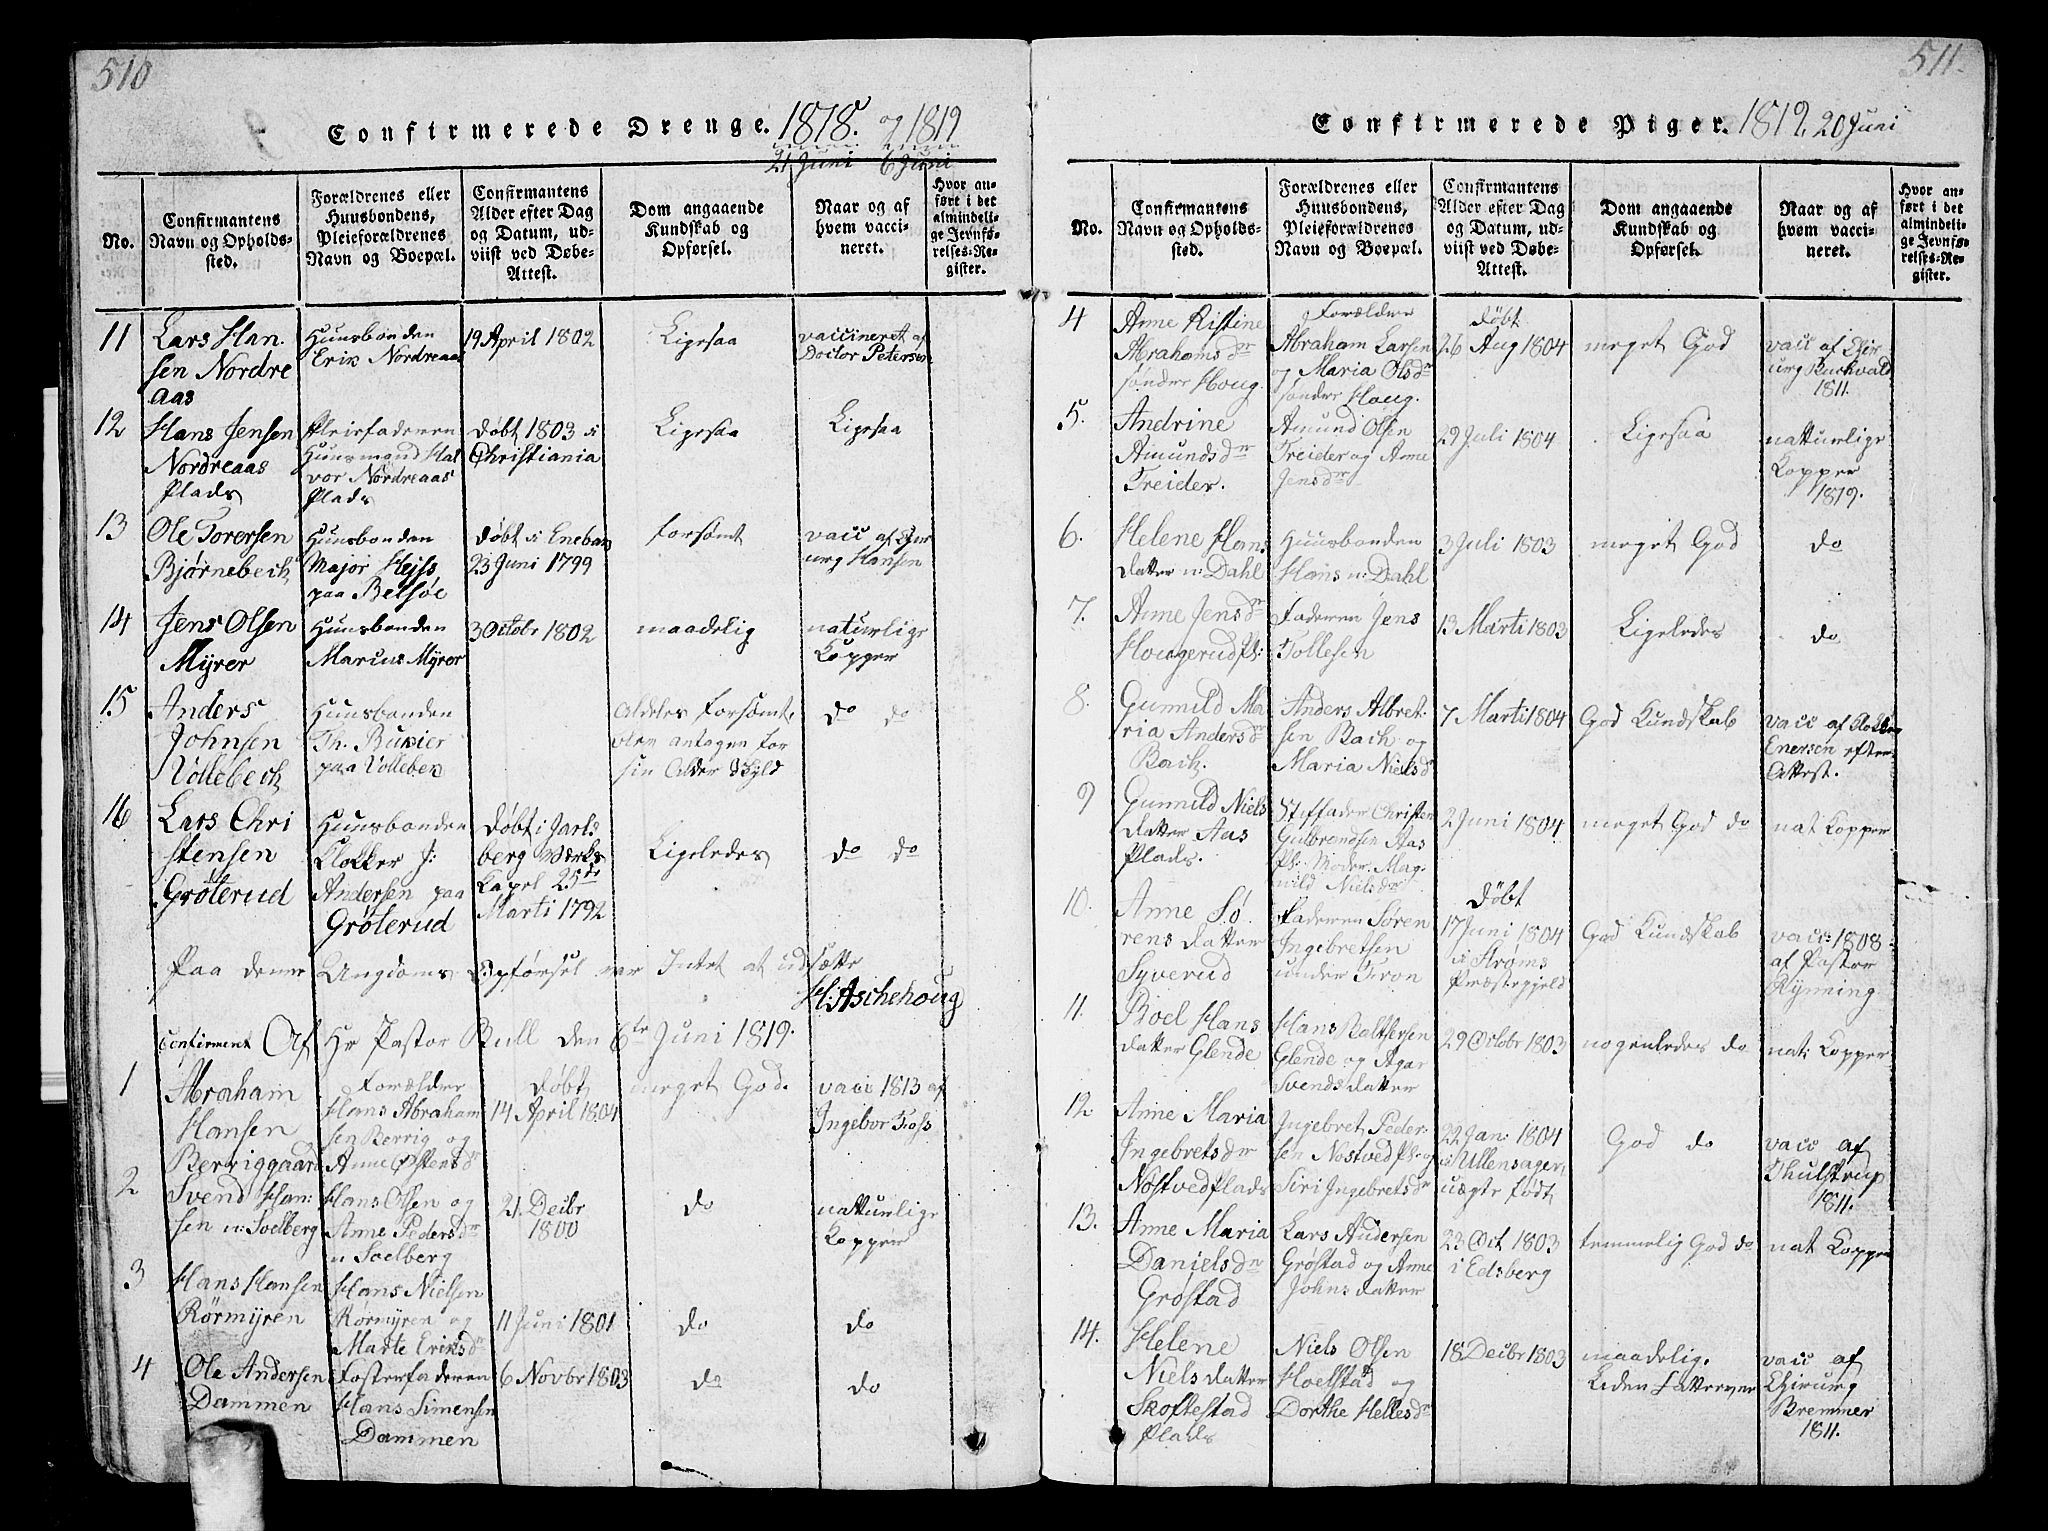 510
Confirmerede Drenge. 1818. og 1819
21 Juni 6 Juni
No.
Confirmantens
Navn og Opholds-
sted.
Forældrenes eller
Huusbondens,
Pleieforældrenes
Navn og Boepæl.
Confirmantens
Alder efter Dag
og Datum, ud-
viist ved Døbe-
Attest.
Dom angaaende
Kundskab og
Opførsel.
Naar og af
hvem vacci-
neret.
Hvor an-
ført i det
almindeli-
ge Jevnfø-
relses-Re-
gister.
11
Lars Han
sen Nordre
Aas
Huusbonden
Erik Nordreaas
19 April 1802
Ligesaa
vaccineret af
Doctor Petersen
12
Hans Jensen
Nordreaas
Plads
Pleiefaderen
Huusmand Hal
vor Nordreaas
Plads
Døbt 1803 i
Christiania
Ligesaa
Ligesaa
13
Ole Torersen
Bjørnebech
Huusbonden
Major Hejss
paa Betsøe
Døbt i Enebak
23 Juni 1799
forsømt
vacc af Chir
urg Hansen
14
Jens Olsen
Myrer
Huusbonden
Marius Myrer
3 Octobr 1802
maadelig
naturlige
Kopper
15
Anders
Johnsen
Vollebech
Huusbonden
Th. Bukier
paa Vollebek
Aldeles forsømt,
men antagen for
sin Alder Skyld
do do
16
Lars Chri
stensen
Grøterud
Huusbonden
Klokker J:
Andersen paa
Grøterud
Døbt i Jarls
berg Værks
Kapel 25de
Marti 1792
Ligeledes
do do
Paa denne Ungdoms Opførsel var Intet at udsætte
H: Aschehoug
Confirmeret Af Hr Pastor Bull den 6te Juni 1819.
1
Abraham
Hansen
Berriggaard
Forælder
Hans Abraham
sen Berrig og
Anne Østensdr
Døbt
14 April 1804
meget God.
vacc 1813 af
Ingebor Foss
2
Svend Han:
sen n: Soelberg
Hans Olsen og
Anne Pedersdr
n Soelberg
21. Decbr
1800
do
natturlige
Kopper
3
Hans Hansen
Rørmyren
Hans Nielsen
Rørmyren og
Marte Eriksdr
11 Juni 1801
do
do
4
Ole Andersen
Dammen
Fosterfaderen
Hans Simensen
Dammen
6 Novbr 1803
do
do
511.
Confirmerede Piger. 1819. 20 Juni
No.
Confirmantens
Navn og Opholds-
sted.
Forældrenes eller
Huusbondens,
Pleieforældrenes
Navn og Boepæl.
Confirmantens
Alder efter Dag
og Datum, ud-
viist ved Døbe-
Attest.
Dom angaaende
Kundskab og
Opførsel.
Naar og af
hvem vacci-
neret.
Hvor an-
ført i det
almindeli-
ge Jevnfø-
relses-Re-
gister.
4
Anne Kistine
Abrahamsdr
søndre Houg
Forældre
Abraham Larsen
og Maria Olsdr
søndre Houg.
Døbt
26 Aug 1804
meget God
vacc af Chir
urg Buchvald
1811.
5.
Andrine
Amundsdr
Treider.
Amund Olsen
Treider og Anne
Jensdr
29 Juli 1804
Ligesaa
natturlige
Kopper
1819.
6.
Helene Hans
datter n: Dahl
Huusbonden
Hans n: Dahl
3 Juli 1803
meget God
do
7.
Anne Jensdr
Hougerud Pl:
Faderen Jens
Tollesen
13 Marti 1803
Ligeledes
do
8.
Gunnild Ma
ria Andersdr
Bach.
Anders Albret
sen Bach og
Maria Nielsdr
7 Marti 1804
God Kundskab
vacc af Klokker
Enersen efter
Attest.
9
Gunnild Niels
datter Aas
Plads.
Stiffader Christen
Gulbrandsen Aas
Pl: Moder. Mag
nild Nielsdr
2 Juni 1804
meget God do
nat Kopper
10.
Anne Sø
rens datter
Syverud
Faderen Søren
Ingebretsen
under Tron
Døbt
17 Juni 1804
i Strøms
Præstegjeld
God Kundskab
vacc: 1808
af Pastor
Rynning
11.
Boel Hans
datter Glende
Hans Balthersen
Glende og Agar
Svends datter
29 Octobr 1803
nogenledes do
nat: Kopper
12
Anne Maria
Ingebretsdr
Nøstved Plads
Ingebret Peder
sen Nøstved Pl: og
Siri Ingebretsdr
22 Jan: 1804
i Ullensager,
uægte født
God do
vacc af
Thulstrup
1811.
13.
Anne Maria
Danielsdr
Grøstad
Lars Andersen
Grøstad og Anne
Johns datter
23 Oct 1803
i Edsberg
temmelig God do
nat Kopper
14.
Helene
Niels datter
Skoftestad
Plads
Niels Olsen
Hoelstad og
Dorthe Hellesdr
18 Decbr 1803
maadelig.
Liden
vacc af
Chirurg
Bremmer
1811.